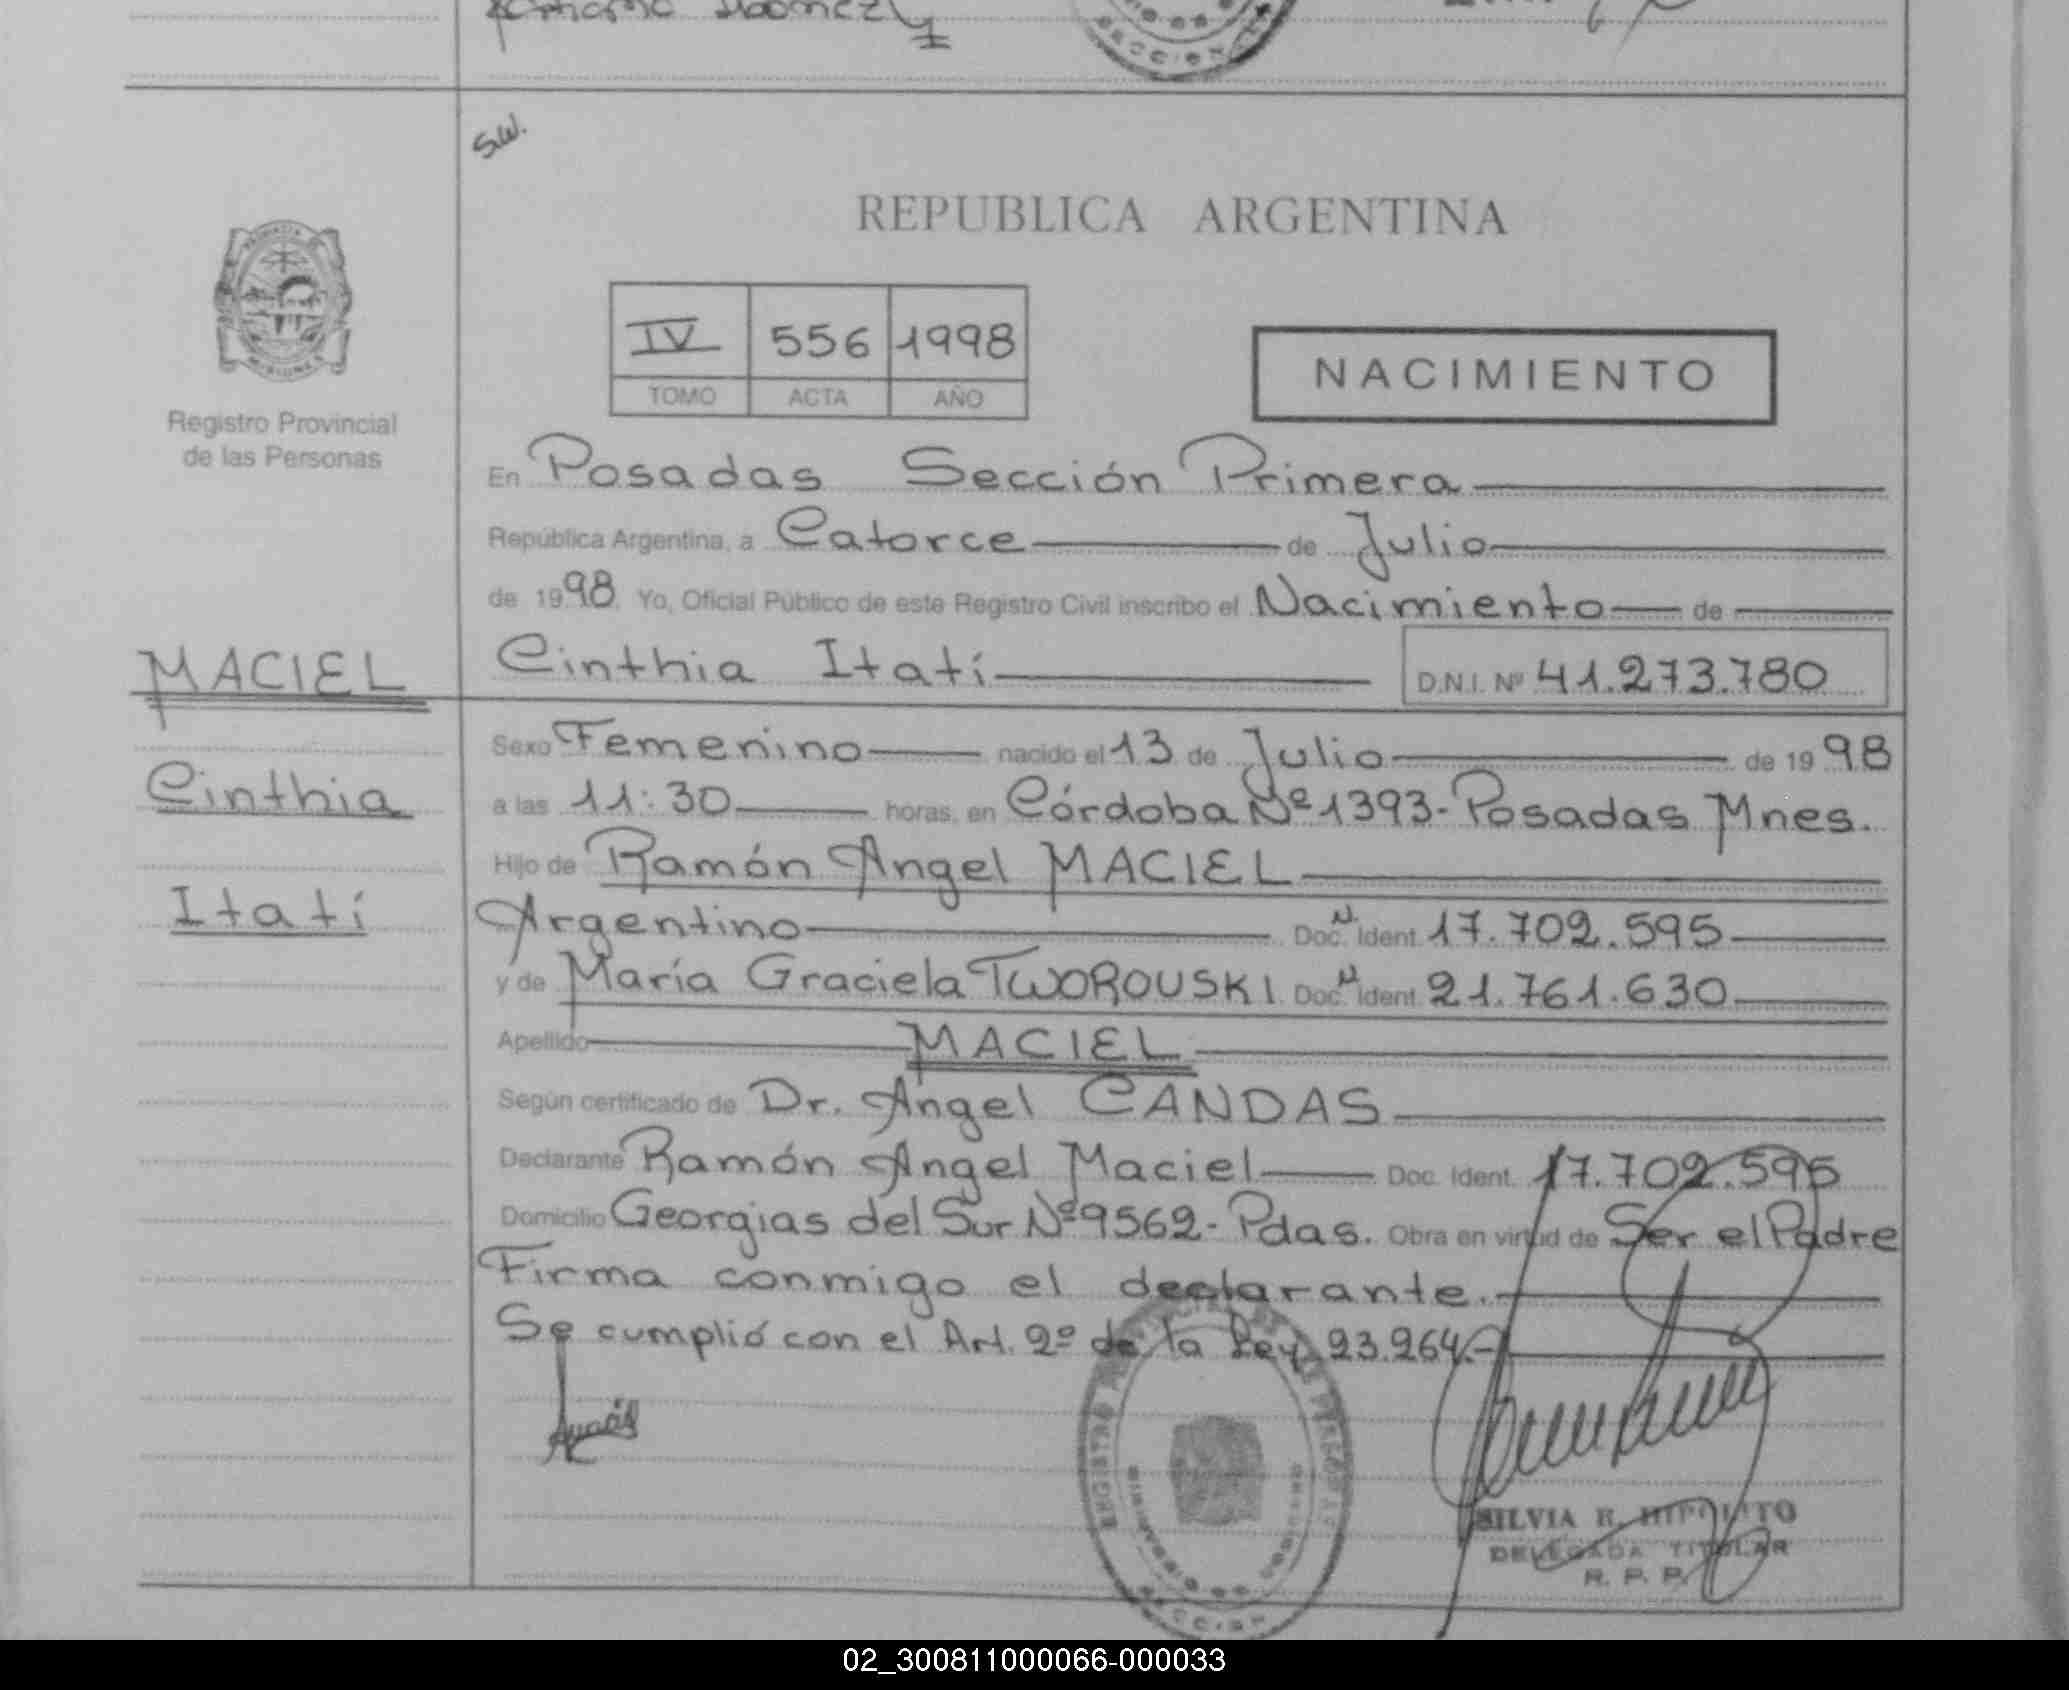 S.W.
REPUBLICA ARGENTINA
IV 556 1998
TOMO ACTA AÑO
NACIMIENTO
Registro Provincial
de las Personas
En Posadas Sección Primera
República Argentina, a Catorce de Julio
de 1998 Yo, Oficial Público de este Registro Civil inscribo el Nacimiento de
Cinthia Itatí D.N.I. Nº 41.273.780
MACIEL
Cinthia
Itatí
Sexo Femenino nacido el 13 de Julio de 1998
a las 11:30 horas, en Córdoba Nº 1393- Posadas Mnes.
Hijo de Ramón Angel MACIEL
Argentino Doc. N. Ident. 17.702.595
y de María Graciela TWOROUSKI Doc. N. Ident. 21.761.630
Apellido MACIEL
Según certificado de Dr. Angel CANDAS
Declarante Ramón Angel Maciel Doc. Ident. 17.702.595
Domicilio Georgias del Sur Nº 9562- Pdas. Obra en virtud de Ser el Padre
Firma conmigo el declarante.
Se cumplió con el Art. 2º de la Ley 23.264.-
SILVIA R. HIPOLITO
DELEGADA TITULAR
R. P. P.
02_300811000066-000033